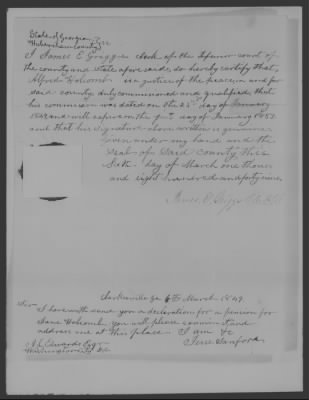 State of Georgia
Habersham County
I James E. Griggs clerk of the Inferior court of
the county and state aforesaid, do hereby certify that,
Alfred Holcomb is a justice of the peace in and for
said county duly commissioned and qualified that
his commission was dated on the day of January
and will expire on the day of January
and that his signature above written is genuine
Given under my hand and the
seal of Said County this
Sixth day of March one thous
and eight hundred and forty nine
James Griggs
Clarksville Ga 6th March 1849.
Sir
I have with same you a declaration for a pension for
Jane Holcomb you will please examine it and
address me at this place. I am &c
Jesse Sanford
J. L. Edwards Esqr
Washington City D.C.